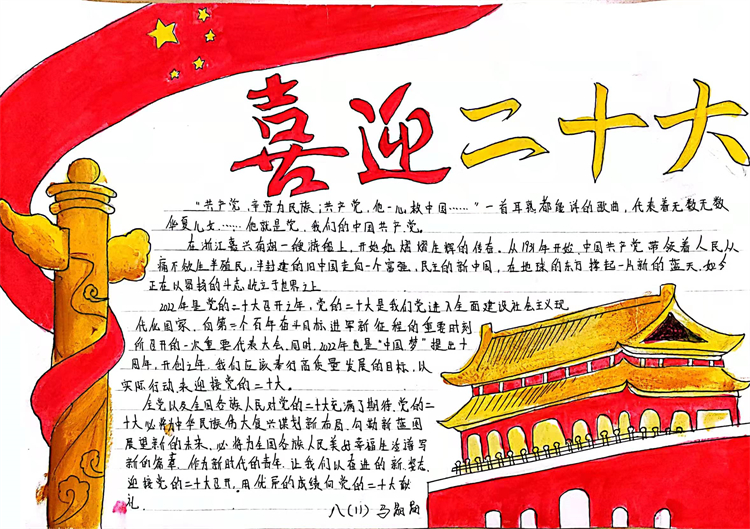 喜迎二十大
"共产党,辛劳为民族;共产党,他一心救中国……"一首耳熟都能详的歌曲,代表着无数无数
华夏儿女……他就是党,我们的中国共产党。
在浙江嘉兴南湖一艘游船上,开始她熠熠生辉的传奇。从1921年开始,中国共产党带领着人民从
痛不欲生半殖民,半封建的旧中国走向一个富强,民主的新中国,在地球的东方撑起一片新的蓝天,如今
正在以昂扬的斗志屹立于世界之上
2022年是党的二十大召开之年,党的二十大是我们党进入全面建设社会主义现
代化国家、向第二个百年奋斗目标进军新征程的重要时刻
召开的一次重要代表大会,同时,2022年也是"中国梦"提出十
周年,开创之年,我们应该奉行高质量发展的目标,以
实际行动来迎接党的二十大。
全党以及全国各族人民对党的二十大充满了期待,党的二
十大必将为中华民族伟大复兴谋划新布局,勾勒新蓝图
展望新的未来,必将为全国各族人民美好幸福生活谱写
新的篇章,作为新时代的青年,让我们以奋进的新姿态
迎接党的二十大召开,用优异的成绩向党的二十大献
礼
八(11)